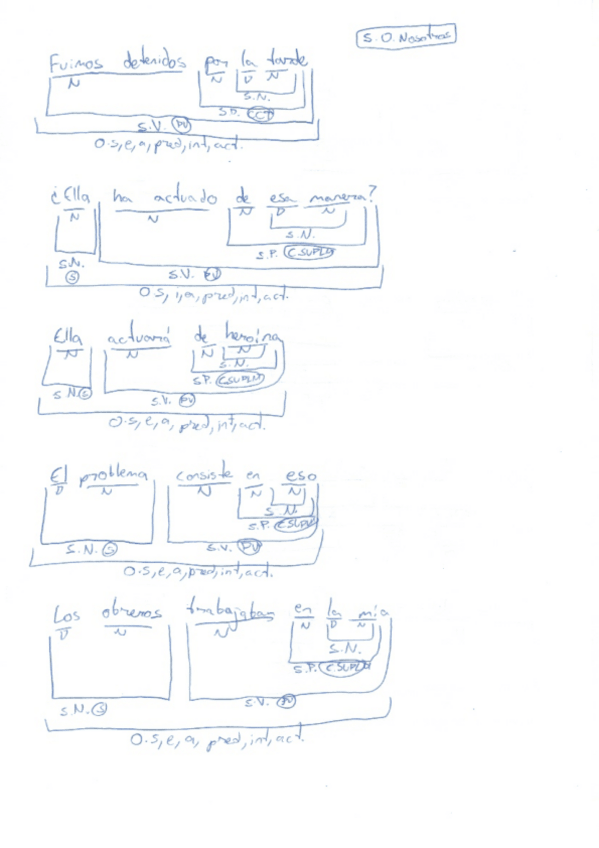 S.O. Nosotros
Fuimos detenidos por la tarde
N N D N
S.N.
S.P. CCT
S.V. PV
O.s, e, a, pred, int, act.
¿Ella ha actuado de esa manera?
N N N D N
S.N.
S.P. CSUPLM
S.N. S.V. PV
S
O.s, i, a, pred, int, act.
Ella actuará de heroína
N N N N
S.N.
S.N. S S.P. CSUPLM
S.V. PV
O.s, e, a, pred, int, act.
El problema consiste en eso
D N N N N
S.N.
S.P. CSUPLM
S.N. S S.V. PV
O.s, e, a, pred, int, act.
Los obreros trabajaban en la mía
D N N N D N
S.N.
S.P. CSUPLM
S.N. S S.V. PV
O.s, e, a, pred, int, act.